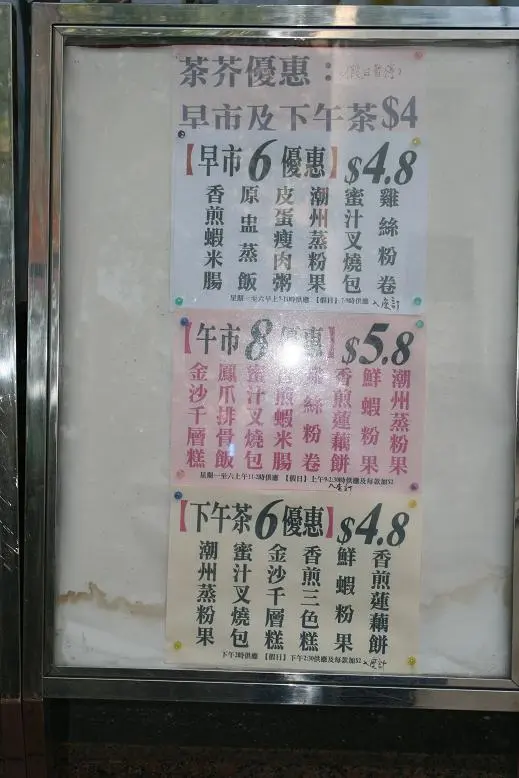 茶芥優惠：（假日暫停）
早市及下午茶$4
【早市6優惠】$4.8
雞絲粉卷
蜜汁叉燒包
潮州蒸粉果
皮蛋瘦肉粥
原盅蒸飯
香煎蝦米腸
入座計
【午市8優惠】$5.8
潮州蒸粉果
鮮蝦粉果
香煎蓮藕餅
雞絲粉卷
香煎蝦米腸
蜜汁叉燒包
鳳爪排骨飯
金沙千層糕
星期一至六上午11-2時供應 【假日】上午9-2:30時供應及每款加$2
入座計
【下午茶6優惠】$4.8
香煎蓮藕餅
鮮蝦粉果
香煎三色糕
金沙千層糕
蜜汁叉燒包
潮州蒸粉果
下午2時供應 【假日】下午2:30供應及每款加$2 入座計